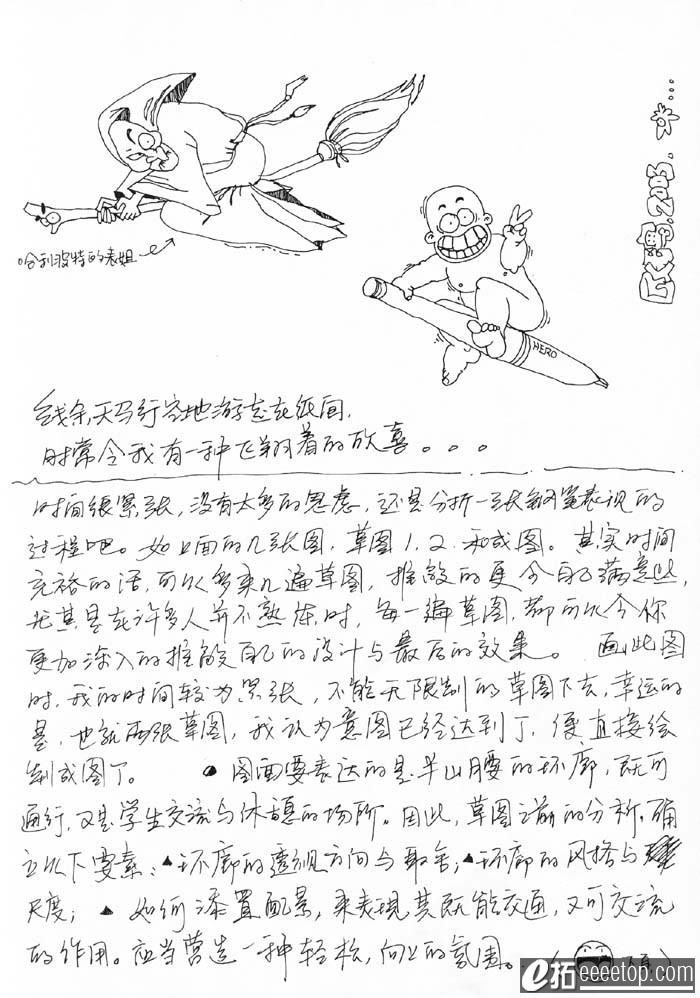 哈利波特的表姐
HERO
2003.
线条,天马行空地游走在纸间,
时常令我有一种飞翔着的欣喜。。。
时间很紧张,没有太多的思虑,还是分析一张钢笔表现的
过程吧。如上面的几张图,草图1.2.和成图。其实时间
充裕的话,可以多来几遍草图,推敲的更令自己满意些,
尤其是在许多人并不熟练时,每一遍草图,都可以令你
更加深入的推敲自己的设计与最后的效果。 画此图
时,我的时间较为紧张,不能无限制的草图下去,幸运的
是,也就两张草图,我认为意图已经达到了,便直接绘
制成图了。 ●图面要表达的是半山腰的环廊,既可
通行,又是学生交流与休憩的场所。因此,草图之前的分析,确
立以下要素:▲环廊的透视方向与取舍;▲环廊的风格与
尺度;▲如何添置配景,来表现其既能交通,又可交流
的作用。应当营造一种轻松,向上的氛围。
e拓 eeeetop.com